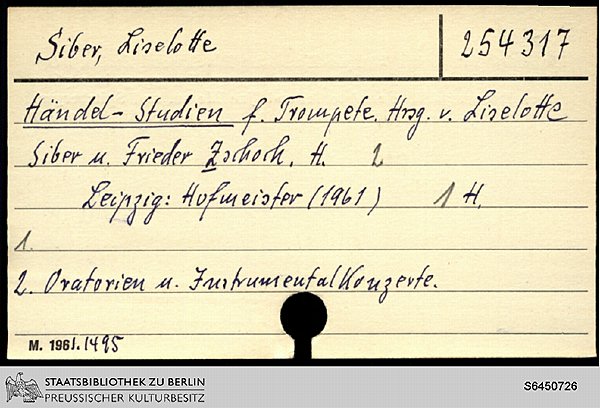 Siber, Liselotte
254317
Händel-Studien f. Trompete. Hrsg. v. Liselotte
Siber u. Frieder Zschoch. H. 2
Leipzig: Hofmeister (1961) 1 H.
1.
2. Oratorien u. Instrumentalkonzerte.
M. 1961.1495
STAATSBIBLIOTHEK ZU BERLIN
PREUSSISCHER KULTURBESITZ
S6450726